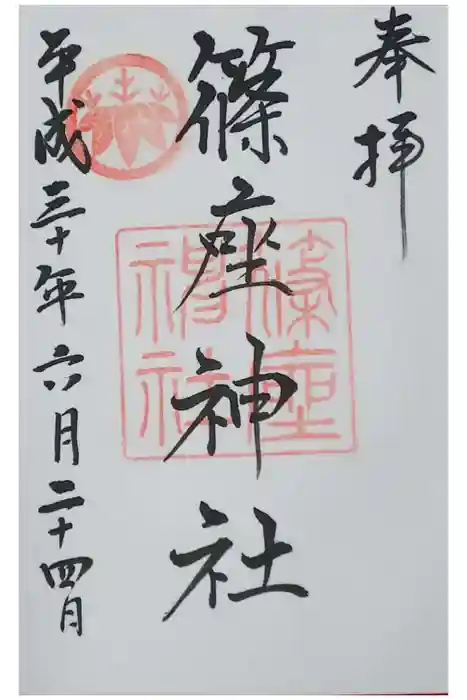 奉拝
篠座神社
篠座神社
平成三十年六月二十四日